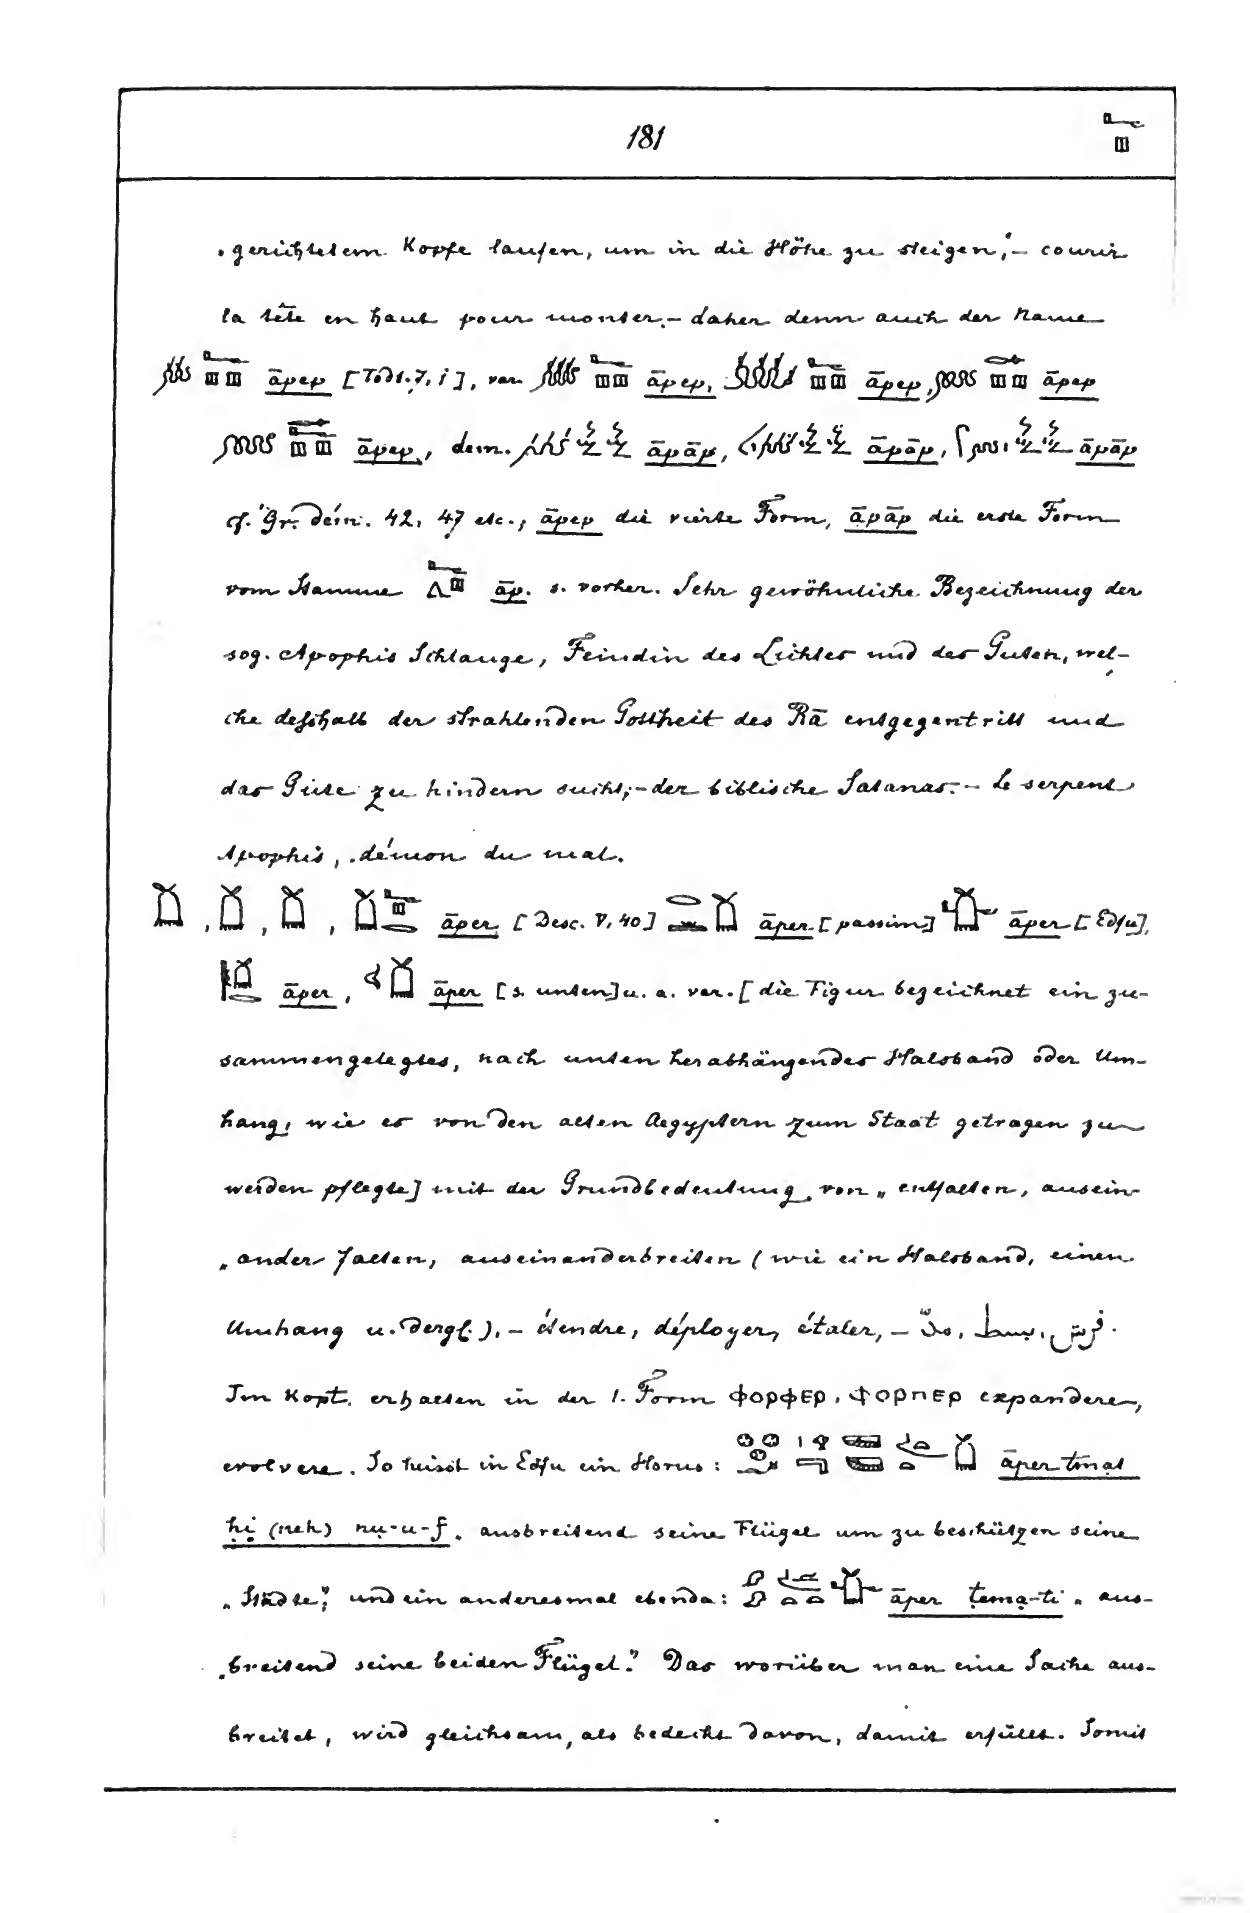 181
„gerichtetem Kopfe laufen, um in die Höhe zu steigen“; – courir
la tête en haut pour monter. – daher denn auch der Name
āpep [Todt. 7, i], var. āpep, āpep, āpep
āpep, dem. āpāp, āpāp, āpāp
cf. Gr. dém. 42, 47 etc., āpep die vierte Form, āpāp die erste Form
vom Stamme āp. s. vorher. Sehr gewöhnliche Bezeichnung der
sog. Apophis Schlange, Feindin des Lichtes und des Guten, wel-
che deßhalb der strahlenden Gottheit des Rā entgegentritt und
das Gute zu hindern sucht; – der biblische Satanas. – Le serpent
Apophis, démon du mal.
, , , āper [Desc. V, 40] āper [passim] āper [Edfu],
āper, āper [s. unten] u. a. var. [die Figur bezeichnet ein zu-
sammengelegtes, nach unten herabhängendes Halsband oder Um-
hang, wie es von den alten Aegyptern zum Staat getragen zu
werden pflegte] mit der Grundbedeutung von „entfalten, ausein-
„ander falten, auseinanderbreiten (wie ein Halsband, einen
Umhang u. dergl.), – étendre, déployer, étaler, – مدّ, بسط, فرش.
Im Kopt. erhalten in der 1. Form ⲫⲟⲣⲫⲉⲣ, ⲫⲟⲣⲡⲉⲣ expandere,
evolvere. So heisst in Edfu ein Horus: āper tmat
ḥi (neh) nu-u-f „ausbreitend seine Flügel um zu beschützen seine
„Städte“, und ein anderesmal ebenda: āper ṭema-ti „aus-
„breitend seine beiden Flügel“. Das worüber man eine Sache aus-
breitet, wird gleichsam, als bedeckt davon, damit erfüllt. Somit